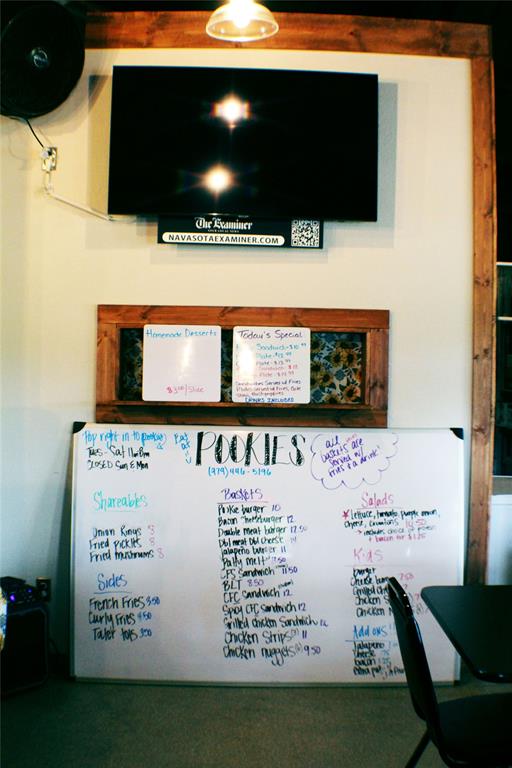 The Examiner
NAVASOTAEXAMINER.COM
Homemade Desserts
$3.00/Slice
Today's Special
Sandwich - $10.99
Plate
Plate
Sandwich
Plate
DRINKS INCLUDED
Pop right in to pookies
Tues - Sat
CLOSED Sun & Mon
Eat
at
POOKIES
(979) 446-5196
all
baskets are
served w/
fries & a drink!
Shareables
Onion Rings 8
Fried Pickles 8
Fried mushrooms 8
Sides
French Fries 3.50
Curly Fries 3.50
Tater tots 3.50
Baskets
Pookie burger 10
Bacon Cheeseburger 12
Double meat burger 12.50
Dbl meat dbl cheese 14
Jalapeño burger 11
Patty melt
CFS Sandwich 11.50
BLT 8.50
CFC Sandwich 12
Spicy CFC Sandwich 12
Grilled chicken Sandwich 12
Chicken Strips 11
Chicken nuggets 9.50
Salads
lettuce, tomato, purple onion,
cheese, croutons
+ bacon for $1.25
Kids
burger
Cheese
Grilled
Chicken
Chicken
Add ons
Jalapeno
Cheese
bacon
extra